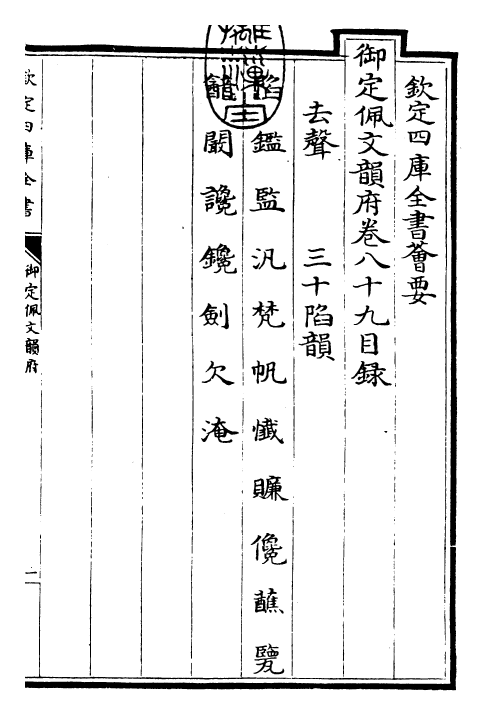 欽定四庫全書薈要
御定佩文韻府卷八十九目録
去聲　三十陷韻
陷鑑監汎梵帆懴賺儳蘸覽
闞讒鑱劍欠淹
欽定四庫全書
御定佩文韻府
一